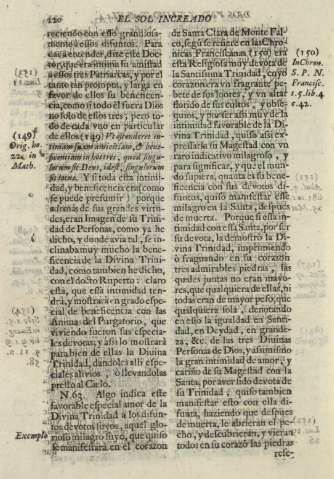 220 EL SOL INCREADO
reciendo con esso grandiosa-
mente a essos difuntos. Para
dar a entender, dize este Doc-
tor, que era intima su amistad
a essos tres Patriarcas, y por el
tanto tan promptu, y larga en
favor de ellos su beneficen-
cia, como si todo él fuera Dios
no solo de essos tres; pero to-
do de cada vno en particular
de ellos: (149) Vt ostenderet in-
timam suam amicitiam, & bene-
ficentiam in his tres, quod singu-
lorum sit Deus, idest, singulorum
sit totus. Y si toda essa intimi-
dad, y beneficencia era (como
se puede presumir) porque
además de sus grandes virtu-
des, eran Imagen de su Trini-
dad de Personas, como ya he
dicho, y donde avia tal, se in-
clinaba muy mucho la bene-
ficencia de la Divina Trini-
dad, como tambien he dicho,
con el docto Ruperto: claro
esta, que esta intimidad ten-
drá, y mostrará en grado espe-
cial de beneficencia con las
Animas del Purgatorio, que
viviendo fueron sus especia-
les devotas; y assi lo mostrará
para bien de ellas la Divina
Trinidad, dandoles alli espe-
ciales alivios, ò llevandolas
presto al Cielo.
N. 63. Algo indica este
favorable especial amor de la
Divina Trinidad à los difun-
tos devotos suyos, aquel glo-
rioso milagro suyo, que quiso
se manifestara en el corazon
(149)
Orig. ho.
22. in
Math.
Exemplo
de Santa Clara de Monte Fal-
co, segun se refiere en las Chro-
nicas Franciscanas. (150) era
esta Religiosa muy devota de
la Santissima Trinidad, cuyo
corazon era vn fragante pe-
bete de sus fervores, y vn altar
florido de sus cultos, y obse-
quios, y por ser assi muy de la
intimidad favorable de la Di-
vina Trinidad, quiso assi ex-
pressarlo su Magestad con vn
raro indicativo milagroso, y
para significar, y que el mun-
do supiera, quanta es su bene-
ficencia con sus devotos di-
funtos, quiso manifestar este
milagro en la Santa, despues
de muerta. Porque si essa in-
timidad con essa Santa, por ser
su devota, la demostró la Di-
vina Trinidad, imprimiendo
ò fraguando en su corazon
tres admirables piedras, las
quales juntas no eran mayo-
res, que qualquiera de ellas, ni
todas eran de mayor peso, que
qualquiera sola, denotando
en esso la igualdad en Santi-
dad, en Deydad, en grande-
za, &c. de las tres Divinas
Personas de Dios, y assimismo
la gran intimidad de amor, y
cariño de su Magestad con la
Santa, por aver sido devota de
su Trinidad, quiso tambien
manifestar esto con ella di-
funta, haziendo que despues
de muerta, le abrieran el pe-
cho, y descubrieran, y vieran
todos en su corazó las piedras
refe-
(150)
In Chron.
S. P. N.
Francisc.
t. 5. lib. 4
c. 42.